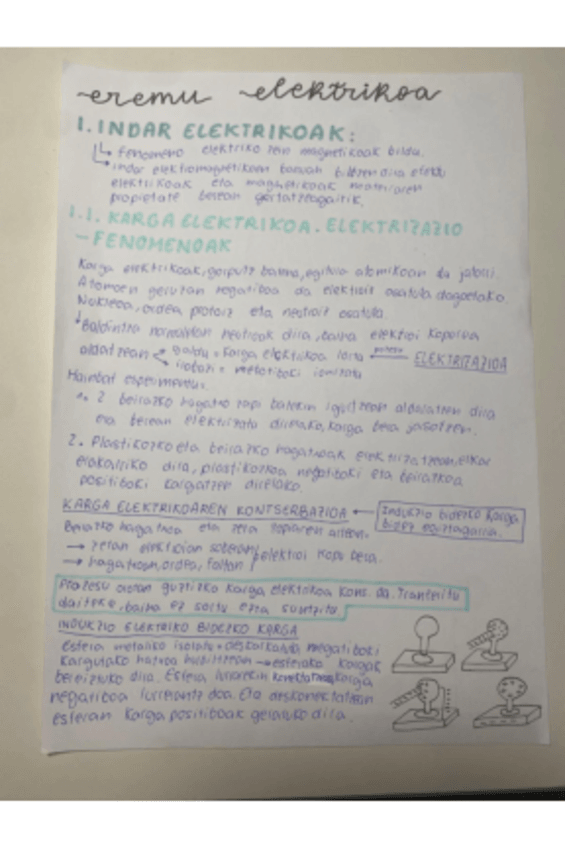 eremu elektrikoa
1. INDAR ELEKTRIKOAK:
fenomeno elektriko zein magnetikoak bildu.
indar elektromagnetikoen baruan biltzen dira efektu
elektrikoak eta magnetikoak materiaren
propietate berean gertatzeagatik.
1.1. KARGA ELEKTRIKOA. ELEKTRIZAZIO
-FENOMENOAK
Karga elektrikoak, gorputz batena, egitura atomikoan du jatorri.
Atomoen geruzan negatiboa da elektroiz osatuta dagoelako.
Nukleoa, ordea protoiz eta neutroiz osatuta.
Baldintza normaletan neutroak dira, baina elektroi kopurua
aldatzean < Galdu = Karga elektrikoa lortu ← prozesu ELEKTRIZAZIOA
irabazi = negatiboki ionizatu
Hainbat esperimentu:
1. 2 beirazko hagatxo zapi batekin igurtzean aldaratzen dira
eta berean elektrizatu direnako, karga bera jasotzen.
2. Plastikozko eta beirazko hagatxoak elektrizatzean, elkar
erakarriko dira, plastikozkoa negatiboki eta beirazkoa
positiboki kargatzen direlako.
KARGA ELEKTRIKOAREN KONTSERBAZIOA ← Indukzio bidezko karga
bidez egiaztagarria.
Beirazko hagatxoa eta zeta zapiaren artean.
→ zetan elektroien soberan / elektroi kopi bera.
→ hagatxoan, ordea, faltan
Prozesu osoan guztizko karga elektrikoa kons. da. Transferitu
daiteke, baina ez sortu ezta suntsitu.
INDUKZIO ELEKTRIKO BIDEZKO KARGA
Esfera metaliko isolatu = deskargatuta negatiboki
kargatuko hatxoa hurbiltzean → esferako kargak
bereiztuko dira. Esfera lurrarekin konektatzean karga
negatiboa lurrerantz doa. Eta deskonektatzean
esferan karga positiboak geratuko dira.